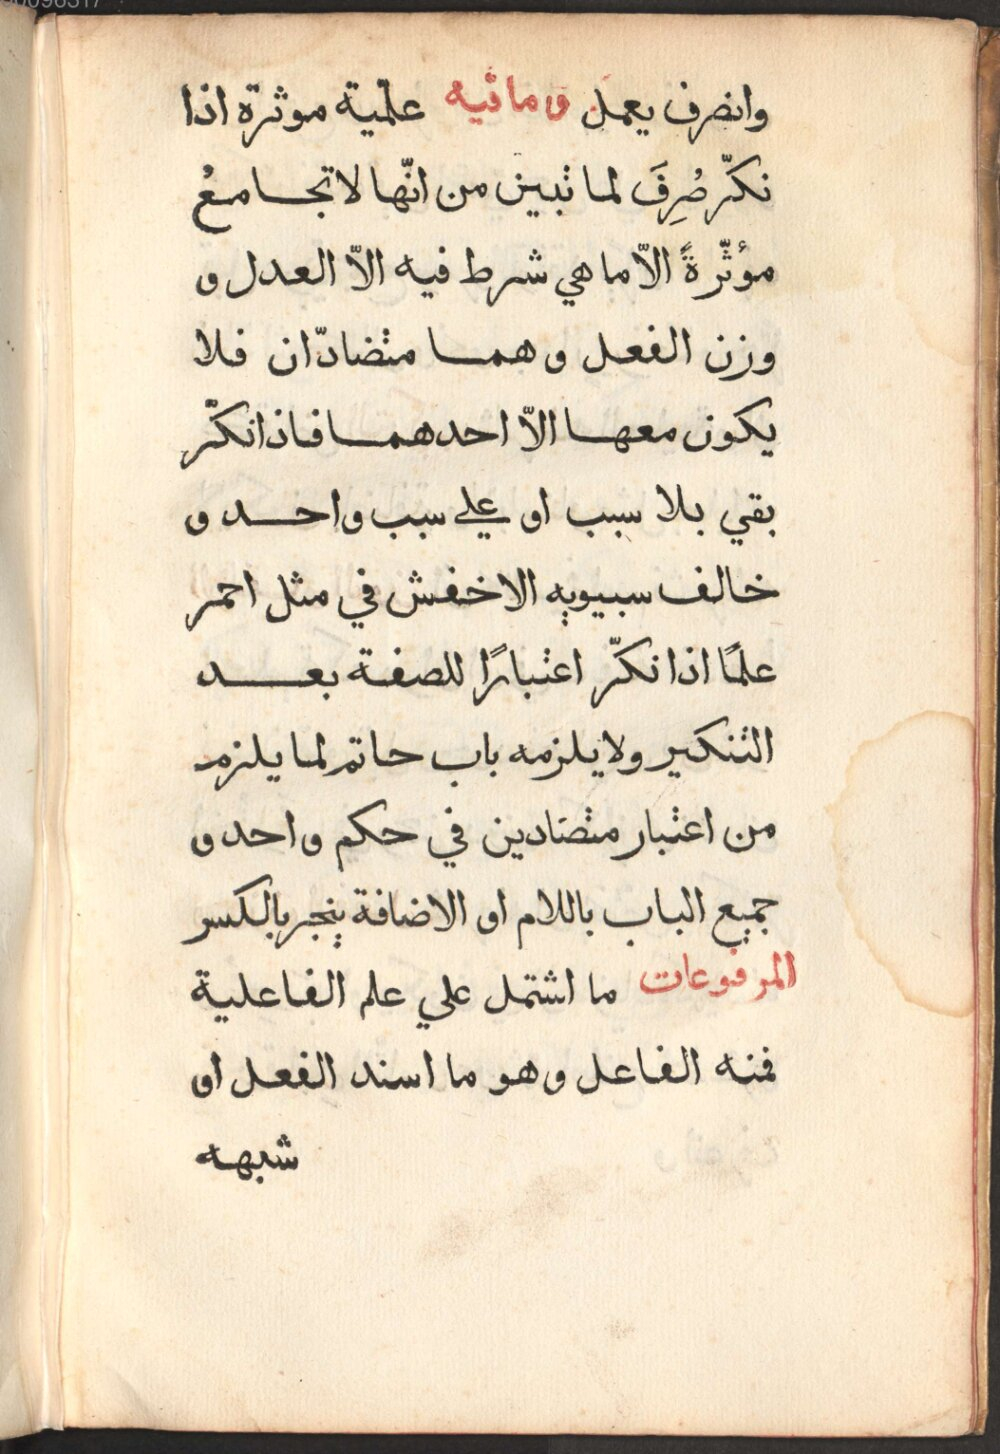 وانصرف يعمل وما فيه علميّة موثرة اذا
نكّر صُرِفَ لما تبين من انّها لا تجامعُ
مؤثّرةً الاّ ما هي شرط فيه الاّ العدل و
وزن الفعل وهما متضادّان فلا
يكون معها الاّ احدهما فاذا نكّر
بقي بلا سبب او علي سبب واحد و
خالف سيبويه الاخفش في مثل احمر
علمًا اذا نكّر اعتبارًا للصفة بعد
التنكير ولا يلزمه باب حاتم لما يلزم
من اعتبار متضادين في حكم واحد و
جميع الباب باللام او الاضافة ينجر بالكسر
المرفوعات ما اشتمل علي علم الفاعلية
فمنه الفاعل وهو ما اسند الفعل او
شبهه